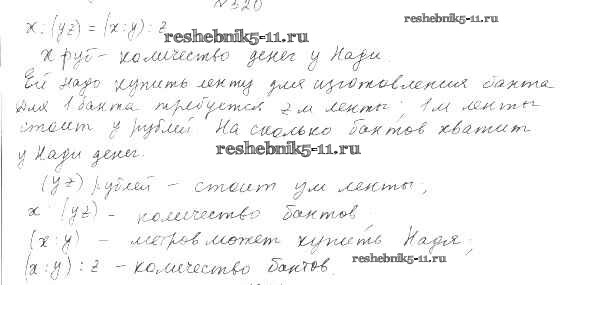 № 320
reshebnik5-11.ru
x : (yz) = (x : y) : z
reshebnik5-11.ru
x руб – количество денег у Нади.
Ей надо купить ленту для изготовления банта
Для 1 банта требуется z м ленты; 1 м ленты
стоит y рублей. На сколько бантов хватит
у Нади денег.
reshebnik5-11.ru
(yz) рублей – стоит y м ленты;
x : (yz) – количество бантов;
(x : y) – метров может купить Надя;
(x : y) : z – количество бантов.
reshebnik5-11.ru